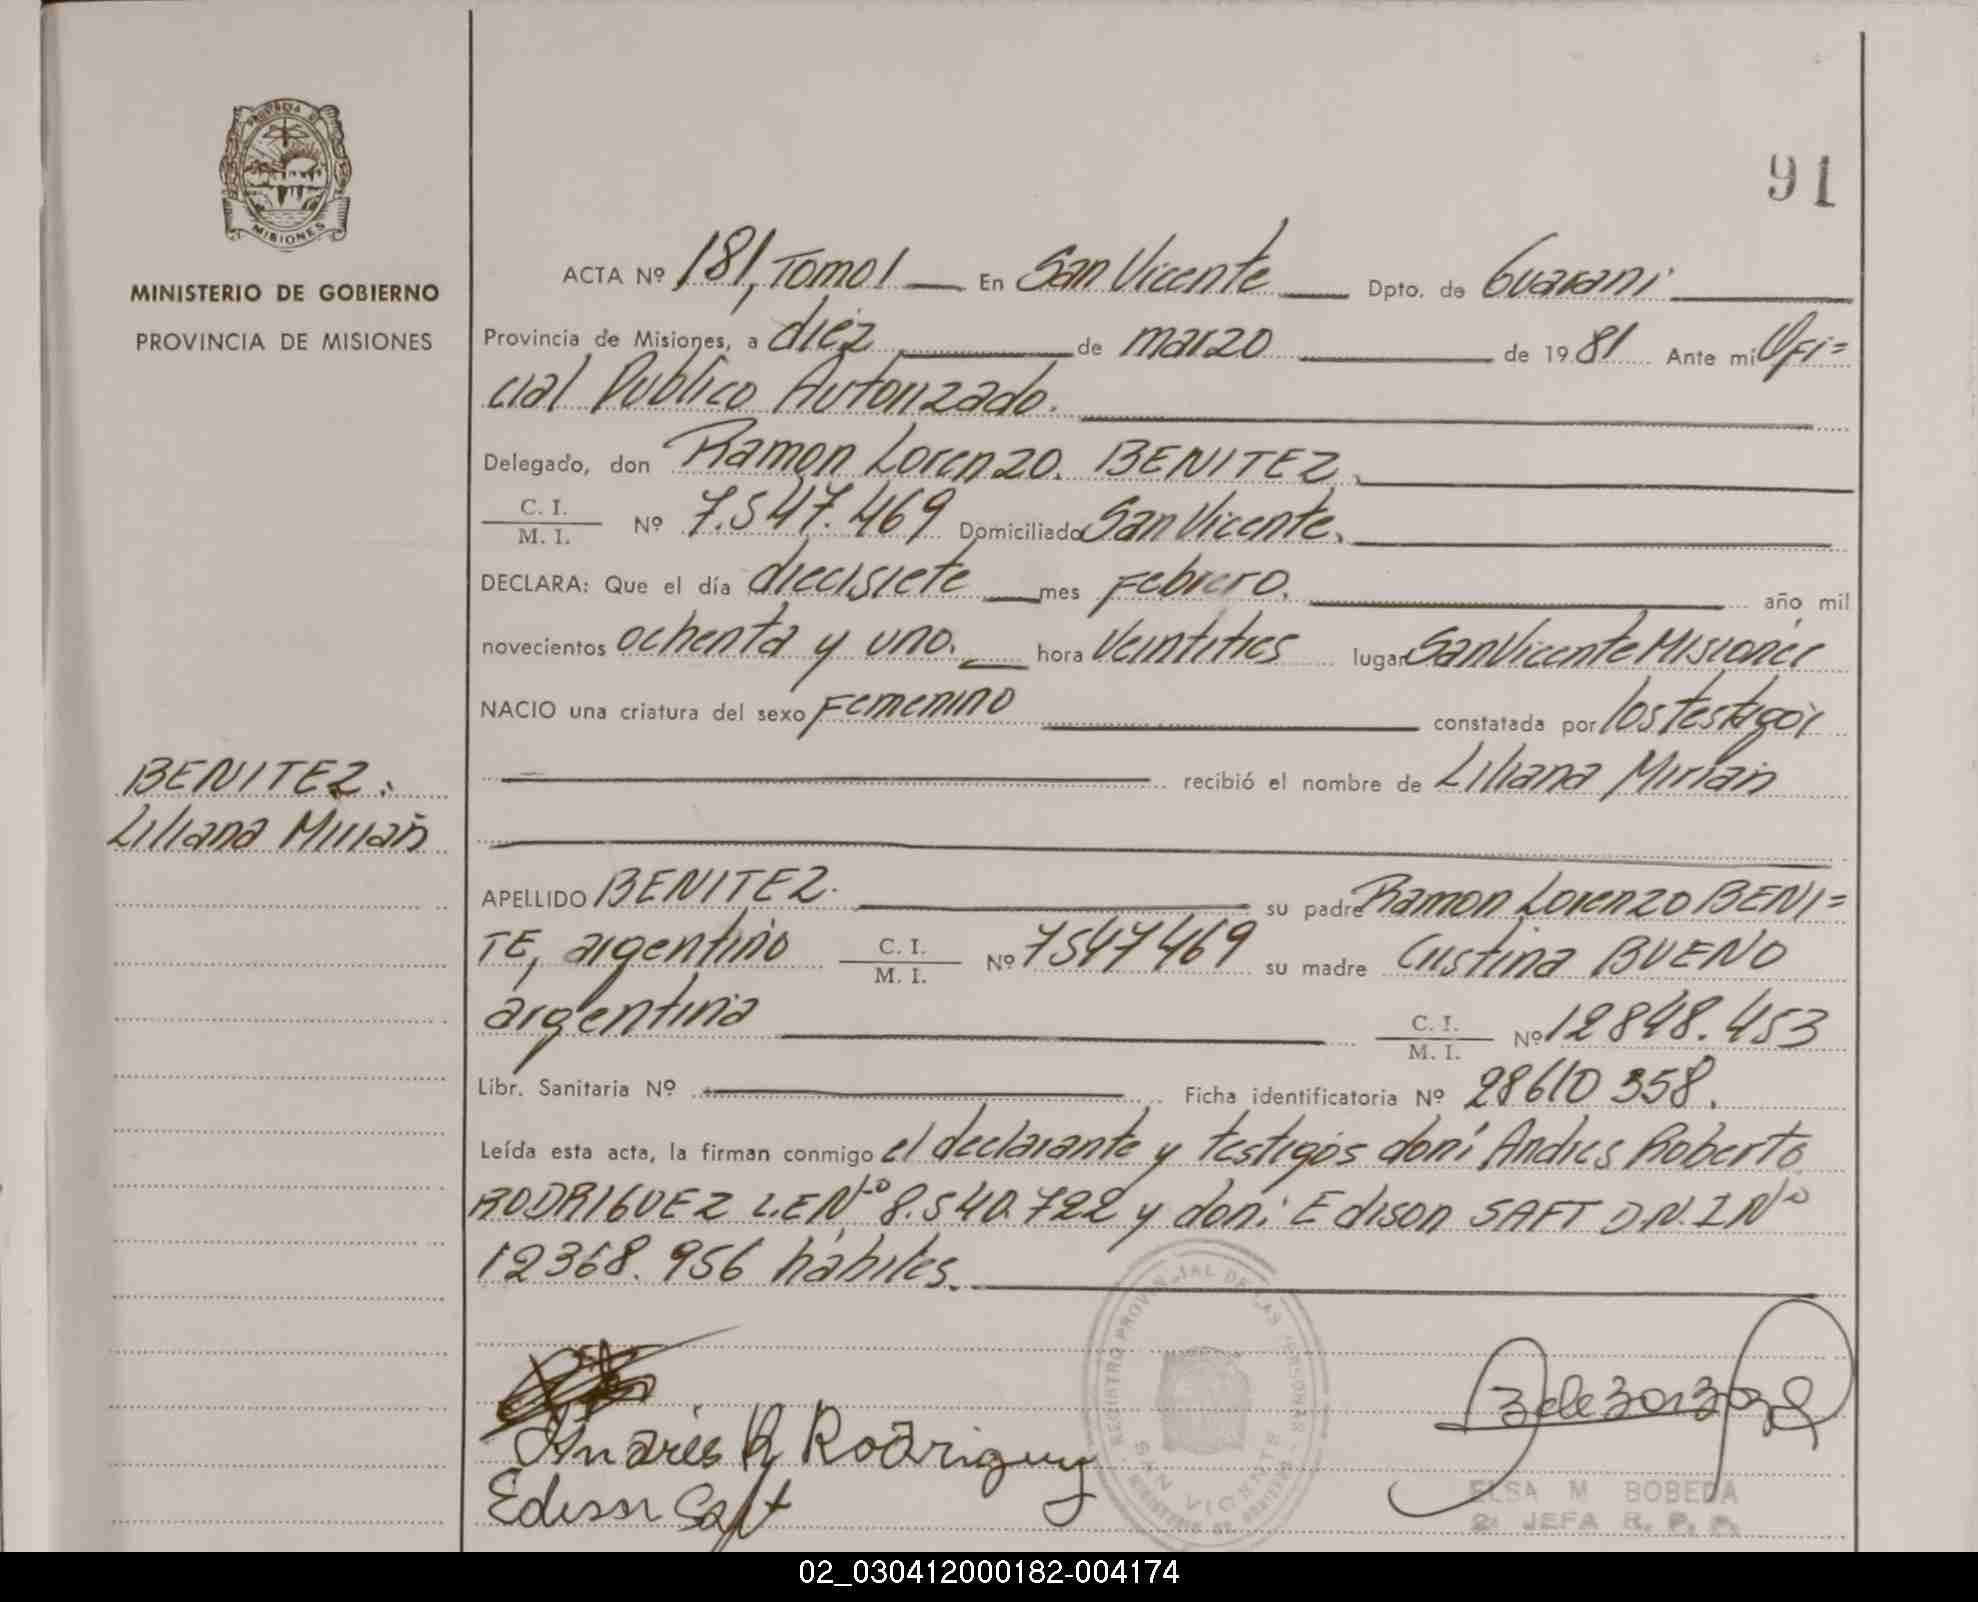 PROVINCIA DE
MISIONES
MINISTERIO DE GOBIERNO
PROVINCIA DE MISIONES
BENITEZ.
Liliana Mirian
91
ACTA Nº 181, Tomo I En San Vicente Dpto. de Guarani
Provincia de Misiones, a diez de marzo de 1981 Ante mi Ofi=
cial Publico Autorizado.
Delegado, don Ramon Lorenzo. BENITEZ.
C. I.
M. I. Nº 7.547.469 Domiciliado San Vicente.
DECLARA: Que el día diecisiete mes Febrero. año mil
novecientos ochenta y uno. hora Veintitres lugar San Vicente Misiones
NACIO una criatura del sexo Femenino constatada por los testigos
recibió el nombre de Liliana Mirian
APELLIDO BENITEZ. su padre Ramon Lorenzo BENI=
TE, argentino C. I. M. I. Nº 7547469 su madre Cristina BUENO
argentina C. I. M. I. Nº 12848.453
Libr. Sanitaria Nº Ficha identificatoria Nº 28610358.
Leída esta acta, la firman conmigo el declarante y testigos don: Andres Roberto
RODRIGUEZ L.E Nº 8.540.722 y don: Edison SAFT D.N.I Nº
12368.956 hábiles.
Andrés R Rodriguez
Edison Saft
REGISTRO PROVINCIAL DE LAS PERSONAS
SAN VICENTE
MINISTERIO DE GOBIERNO
ELSA M BOBEDA
2ª JEFA R. P. P.
02_030412000182-004174